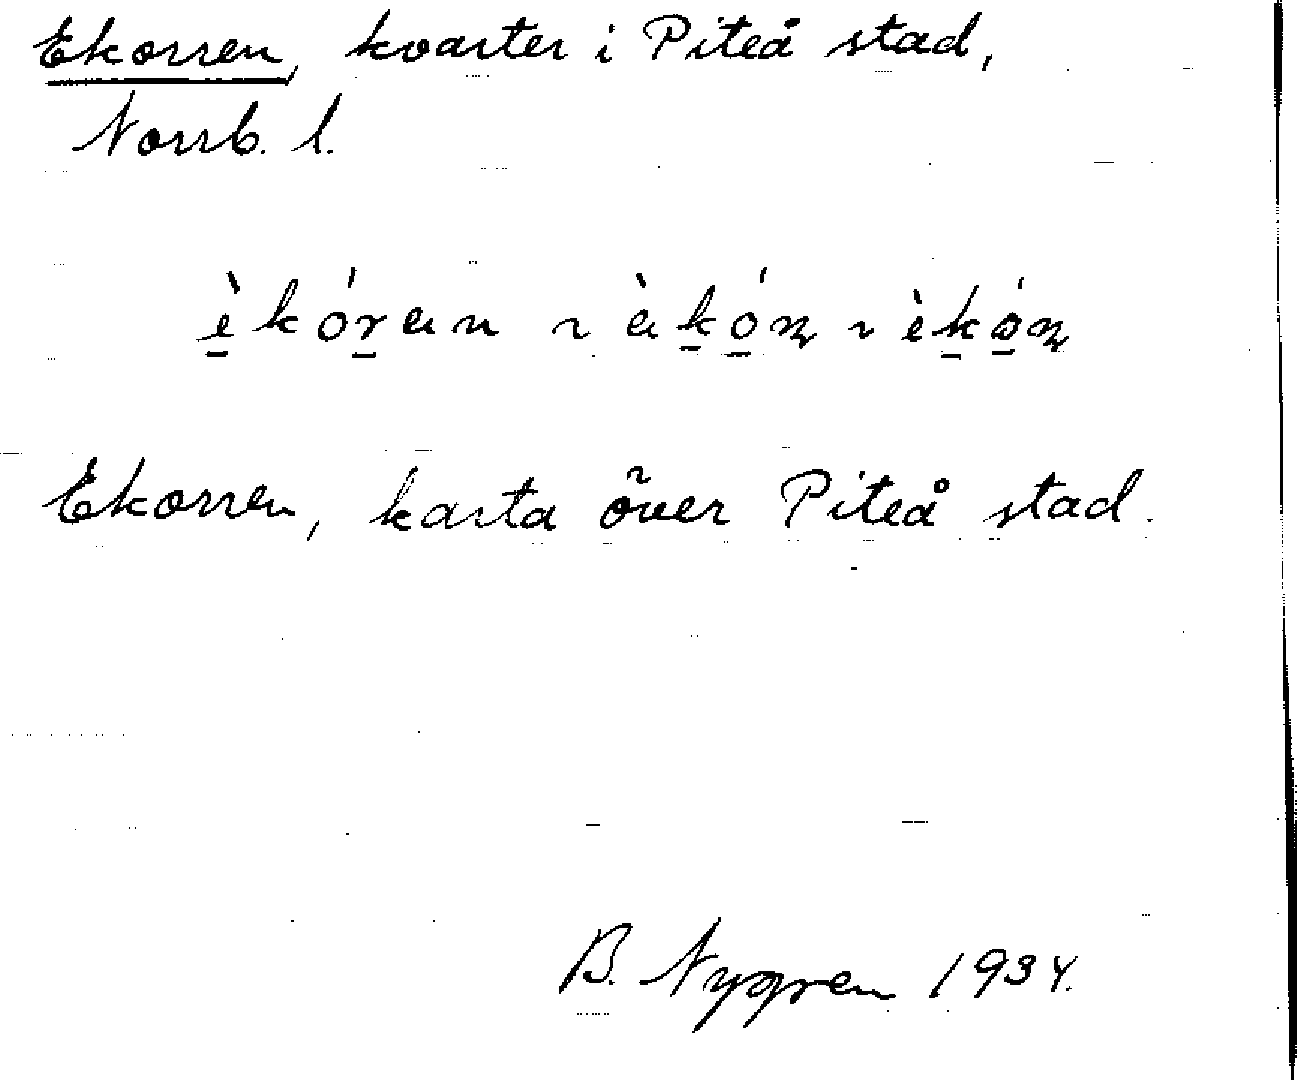 Ekorren, kvarter i Piteå stad,
Norrb. l.
è̱kóṟen ~ èḵó̱n ~ èḵó̱n
Ekorren, karta över Piteå stad.
B. Nygren 1934.